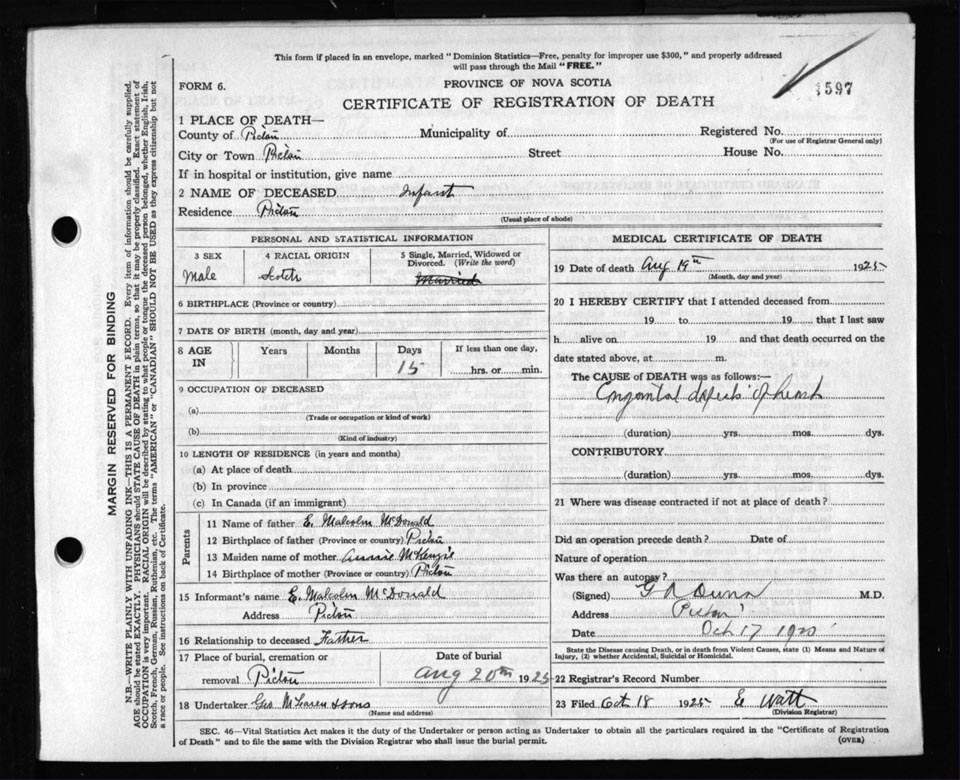 This form if placed in an envelope, marked "Dominion Statistics—Free, penalty for improper use $300," and properly addressed
will pass through the Mail "FREE."
FORM 6.
PROVINCE OF NOVA SCOTIA
1597
CERTIFICATE OF REGISTRATION OF DEATH
1 PLACE OF DEATH—
County of Pictou Municipality of Registered No.
(For use of Registrar General only)
City or Town Pictou Street House No.
If in hospital or institution, give name
2 NAME OF DECEASED Infant
Residence Pictou
(Usual place of abode)
PERSONAL AND STATISTICAL INFORMATION
3 SEX
Male
4 RACIAL ORIGIN
Scotch
5 Single, Married, Widowed or
Divorced. (Write the word)
Married
6 BIRTHPLACE (Province or country)
7 DATE OF BIRTH (month, day and year)
8 AGE
IN
Years
Months
Days
15
If less than one day,
hrs. or min.
9 OCCUPATION OF DECEASED
(a)
(Trade or occupation or kind of work)
(b)
(Kind of industry)
10 LENGTH OF RESIDENCE (in years and months)
(a) At place of death
(b) In province
(c) In Canada (if an immigrant)
Parents
11 Name of father E. Malcolm McDonald
12 Birthplace of father (Province or country) Pictou
13 Maiden name of mother Annie McKenzie
14 Birthplace of mother (Province or country) Pictou
15 Informant's name E. Malcolm McDonald
Address Pictou
16 Relationship to deceased Father
17 Place of burial, cremation or
removal Pictou
Date of burial
Aug 20th 1925
18 Undertaker Geo McLaren & Sons
(Name and address)
MEDICAL CERTIFICATE OF DEATH
19 Date of death Aug 19th 1925
(Month, day and year)
20 I HEREBY CERTIFY that I attended deceased from
19 to 19 that I last saw
h alive on 19 and that death occurred on the
date stated above, at m.
The CAUSE of DEATH was as follows:—
Congenital defects of heart
(duration) yrs. mos. dys.
CONTRIBUTORY
(duration) yrs. mos. dys.
21 Where was disease contracted if not at place of death?
Did an operation precede death? Date of
Nature of operation
Was there an autopsy?
(Signed) G A Dunn M.D.
Address Pictou
Date Oct 17
State the Disease causing Death, or in death from Violent Causes, state (1) Means and Nature of
Injury, (2) whether Accidental, Suicidal or Homicidal.
22 Registrar's Record Number
23 Filed Oct 18 1925 E Watt
(Division Registrar)
SEC. 46—Vital Statistics Act makes it the duty of the Undertaker or person acting as Undertaker to obtain all the particulars required in the "Certificate of Registration
of Death" and to file the same with the Division Registrar who shall issue the burial permit.
(OVER)
MARGIN RESERVED FOR BINDING
N.B.—WRITE PLAINLY WITH UNFADING INK—THIS IS A PERMANENT RECORD. Every item of information should be carefully supplied.
AGE should be stated EXACTLY. PHYSICIANS should STATE CAUSE OF DEATH in plain terms, so that it may be properly classified. Exact statement of
OCCUPATION is very important. RACIAL ORIGIN will be described by stating to what people or tongue the deceased person belonged, whether English, Irish,
Scotch, French, German, Russian, Ruthenian, etc. The terms "AMERICAN" or "CANADIAN" SHOULD NOT BE USED as they express citizenship but not
a race or people. See instructions on back of Certificate.